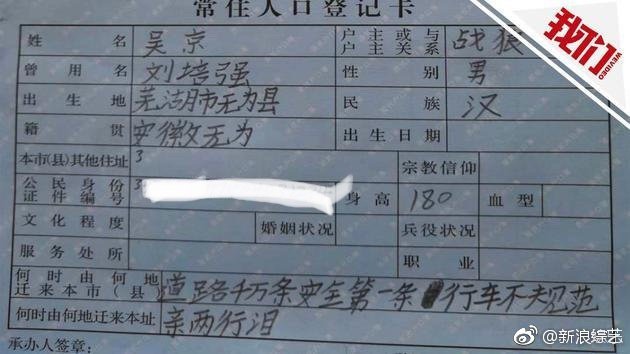 常住人口登记卡
姓名 吴京 户主或与户主关系 战狼
曾用名 刘培强 性别 男
出生地 芜湖市无为县 民族 汉
籍贯 安徽无为 出生日期
本市(县)其他住址 宗教信仰
公民身份证件编号 3 身高 180 血型
文化程度 婚姻状况 兵役状况
服务处所 职业
何时由何地迁来本市(县) 道路千万条安全第一条 行车不夫见范
何时由何地迁来本址 亲两行泪
承办人签章:
我们
WEVIDEO
@新浪综艺